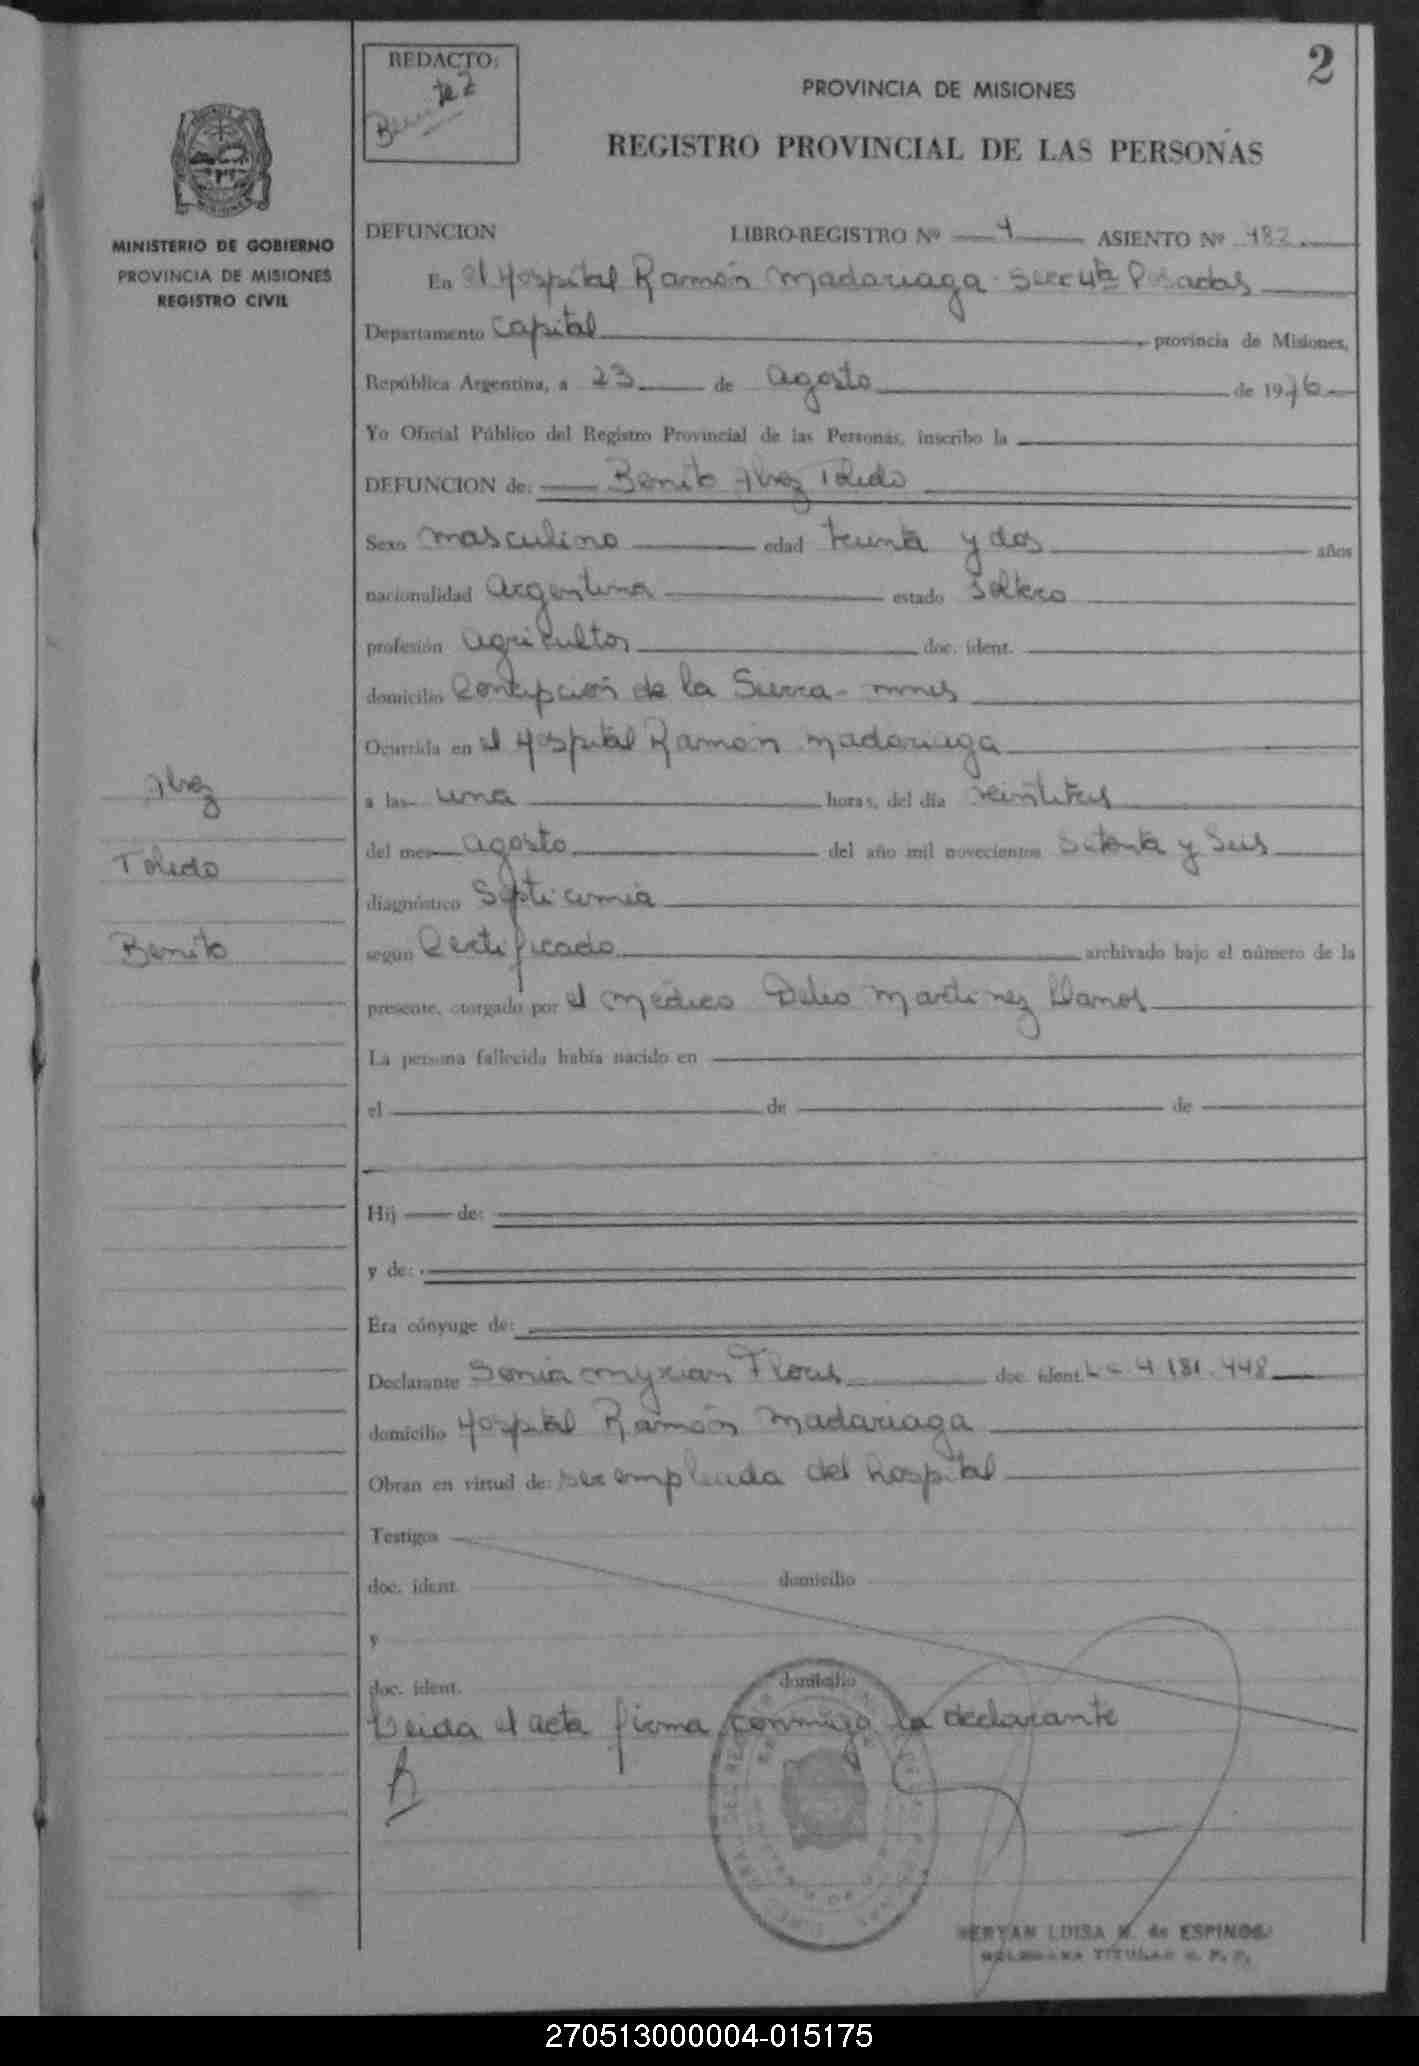 REDACTO:
Benitez
2
PROVINCIA DE MISIONES
REGISTRO PROVINCIAL DE LAS PERSONAS
MINISTERIO DE GOBIERNO
PROVINCIA DE MISIONES
REGISTRO CIVIL
DEFUNCION LIBRO-REGISTRO Nº 4 ASIENTO Nº 482
En el Hospital Ramón Madariaga - Secc 4ta Posadas
Departamento Capital, provincia de Misiones,
República Argentina, a 23 de agosto de 1976
Yo Oficial Público del Registro Provincial de las Personas, inscribo la
DEFUNCION de: Benito Toledo
Sexo masculino edad treinta y dos años
nacionalidad Argentina estado soltero
profesión agricultor doc. ident.
domicilio Concepción de la Sierra - mnes
Ocurrida en el Hospital Ramón Madariaga
a las una horas, del día veintitres
del mes agosto del año mil novecientos setenta y seis
diagnóstico Septicemia
según Certificado archivado bajo el número de la
presente, otorgado por el médico Delio Martinez Llanos
La persona fallecida había nacido en
el de de
Hij de:
y de:
Era cónyuge de:
Declarante Sonia Myrian Flores doc. ident. L C 4.181.448
domicilio Hospital Ramón Madariaga
Obran en virtud de: ser empleada del hospital
Testigos
doc. ident. domicilio
y
doc. ident. domicilio
Leida el acta firma conmigo la declarante
Toledo
Benito
LUISA de ESPINOSA
TITULAR
270513000004-015175